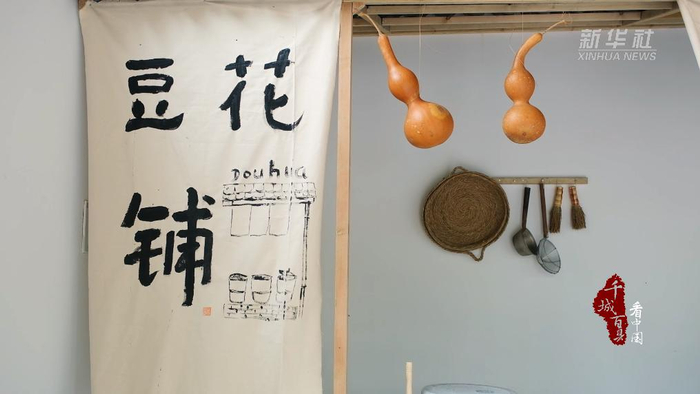 豆花
铺
Douhua
新华社
XINHUA NEWS
千城百县
看中国